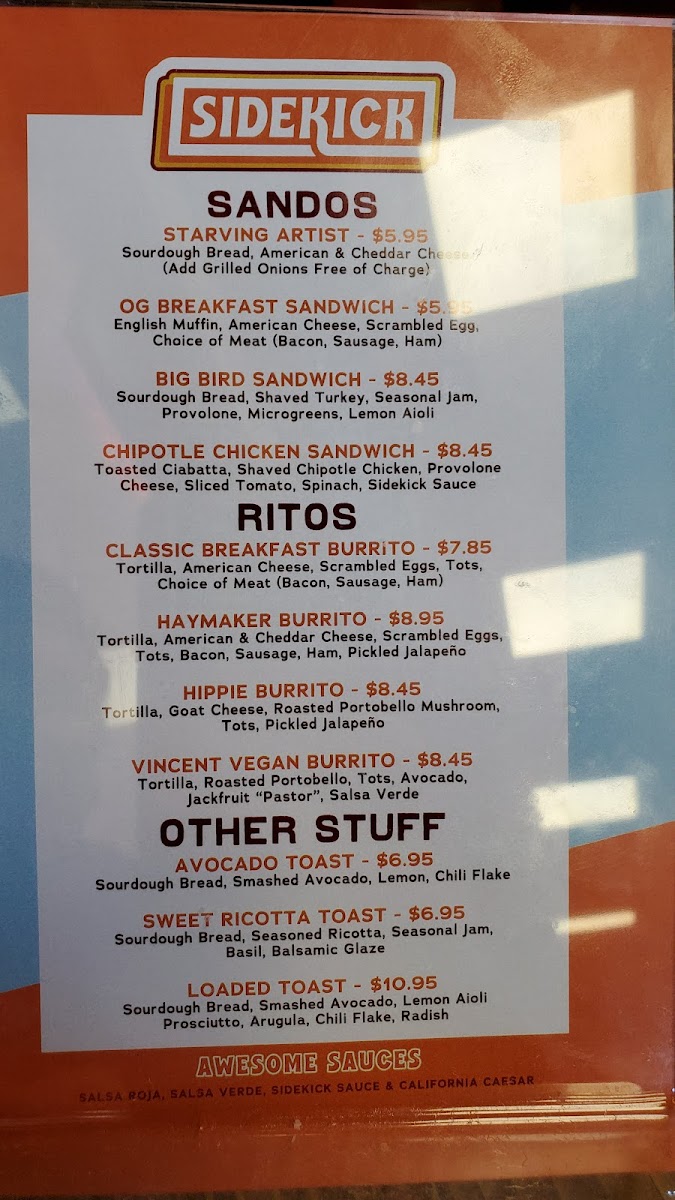 SIDEKICK
SANDOS
STARVING ARTIST - $5.95
Sourdough Bread, American & Cheddar Cheese
(Add Grilled Onions Free of Charge)
OG BREAKFAST SANDWICH - $5.95
English Muffin, American Cheese, Scrambled Egg,
Choice of Meat (Bacon, Sausage, Ham)
BIG BIRD SANDWICH - $8.45
Sourdough Bread, Shaved Turkey, Seasonal Jam,
Provolone, Microgreens, Lemon Aioli
CHIPOTLE CHICKEN SANDWICH - $8.45
Toasted Ciabatta, Shaved Chipotle Chicken, Provolone
Cheese, Sliced Tomato, Spinach, Sidekick Sauce
RITOS
CLASSIC BREAKFAST BURRITO - $7.85
Tortilla, American Cheese, Scrambled Eggs, Tots,
Choice of Meat (Bacon, Sausage, Ham)
HAYMAKER BURRITO - $8.95
Tortilla, American & Cheddar Cheese, Scrambled Eggs,
Tots, Bacon, Sausage, Ham, Pickled Jalapeño
HIPPIE BURRITO - $8.45
Tortilla, Goat Cheese, Roasted Portobello Mushroom,
Tots, Pickled Jalapeño
VINCENT VEGAN BURRITO - $8.45
Tortilla, Roasted Portobello, Tots, Avocado,
Jackfruit "Pastor", Salsa Verde
OTHER STUFF
AVOCADO TOAST - $6.95
Sourdough Bread, Smashed Avocado, Lemon, Chili Flake
SWEET RICOTTA TOAST - $6.95
Sourdough Bread, Seasoned Ricotta, Seasonal Jam,
Basil, Balsamic Glaze
LOADED TOAST - $10.95
Sourdough Bread, Smashed Avocado, Lemon Aioli
Prosciutto, Arugula, Chili Flake, Radish
AWESOME SAUCES
SALSA ROJA, SALSA VERDE, SIDEKICK SAUCE & CALIFORNIA CAESAR